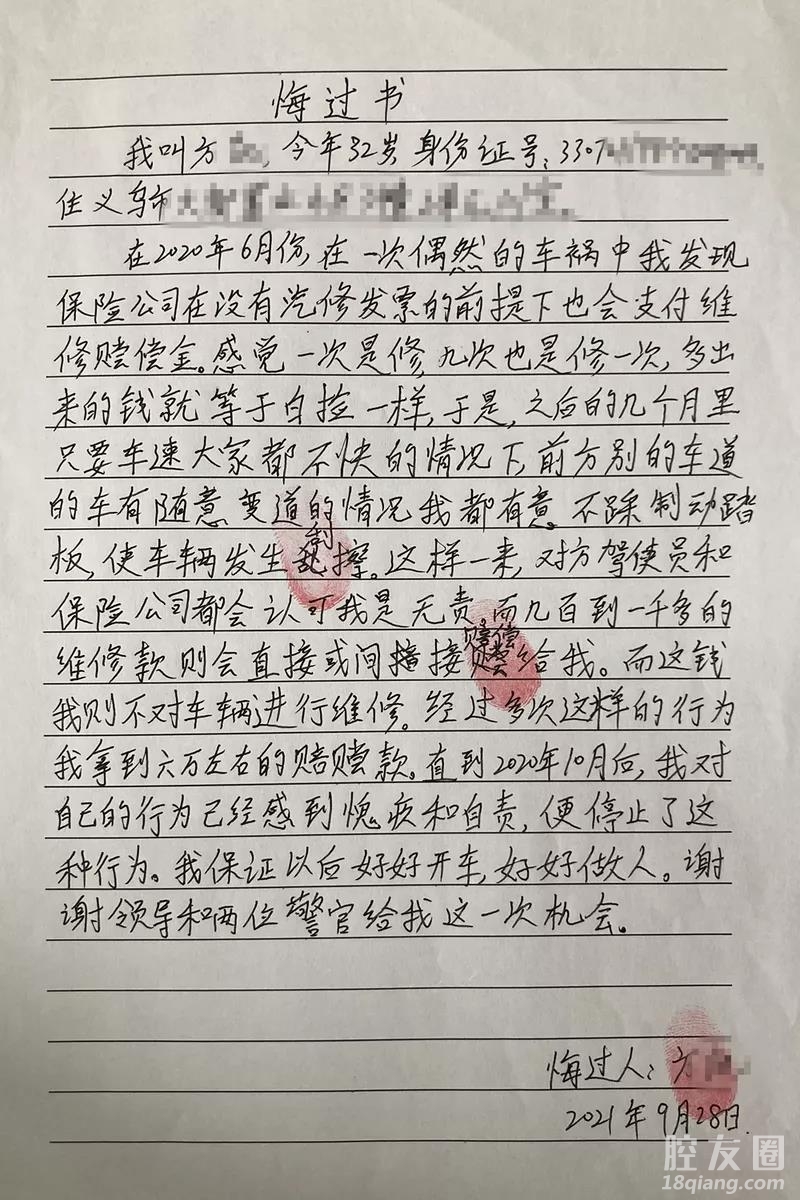 悔过书
我叫方 , 今年32岁 身份证号: 3307
住义乌市
在2020年6月份, 在一次偶然的车祸中我发现
保险公司在没有汽修发票的前提下也会支付维
修赔偿金。感觉一次是修, 九次也是修一次, 多出
来的钱就等于白捡一样, 于是, 之后的几个月里
只要车速大家都不快的情况下, 前方别的车道
的车有随意变道的情况我都有意不踩制动踏
板, 使车辆发生刮擦。这样一来, 对方驾使员和
保险公司都会认可我是无责。而几百到一千多的
维修款则会直接或间接赔偿给我。而这钱
我则不对车辆进行维修。经过多次这样的行为
我拿到六万左右的赔赏款。直到2020年10月后, 我对
自己的行为已经感到愧疚和自责, 便停止了这
种行为。我保证以后好好开车, 好好做人。谢
谢领导和两位警官给我这一次机会。
悔过人: 方
2021年9月28日.
腔友圈
18qiang.com